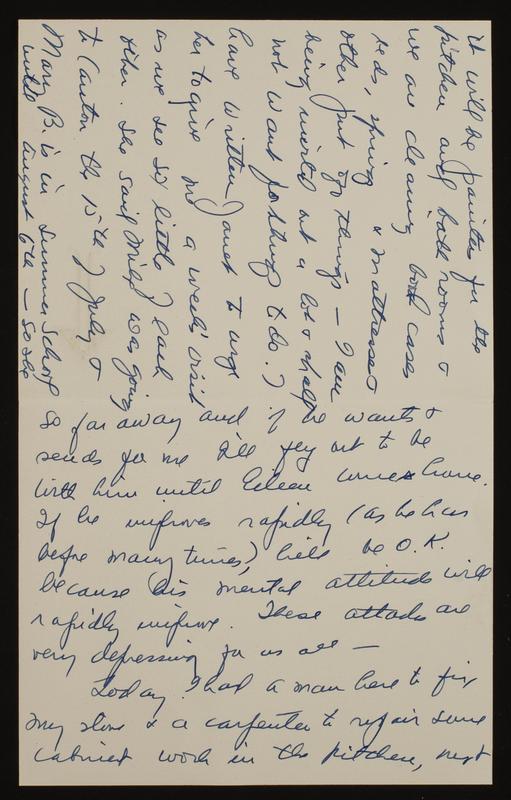 so far away and if he wants &
sends for me I'll fly out to be
with him until Eileen comes home.
If he improves rapidly (as he has
before many times,) he'll be O.K.
because his mental attitude will
rapidly improve. These attacks are
very depressing for us all —
Today I had a man here to fix
my stove & a carpenter to repair some
cabinet work in the kitchen, next
it will be painters for the
kitchen and bath rooms &
we are cleaning book cases
beds, springs & mattresses
other just things — I am
being out a lot & help
not want for things to do. I
have written Janet to urge
her to give me a week's visit
as we see so little of each
other. She said was going
to Canton the 15th of July, &
Mary B. is in Summer School
until August 6th — so she